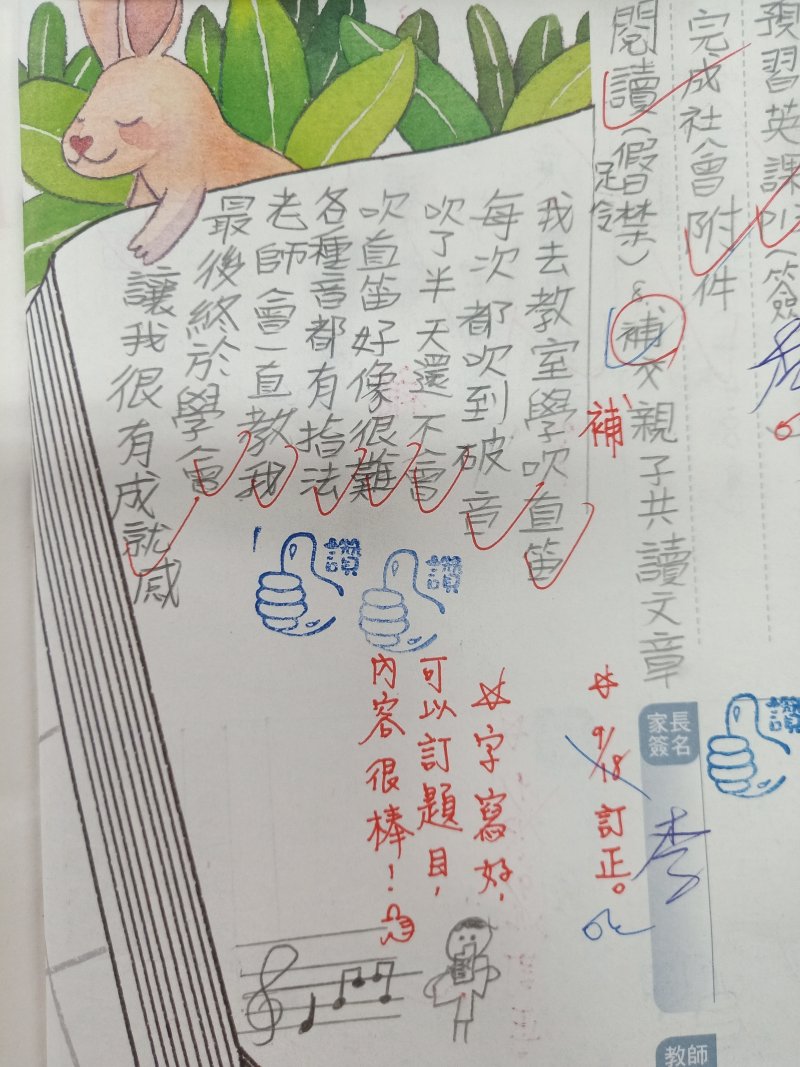 預習英課
完成社會附件
閱讀(假日
補交親子共讀文章
補
我去教室學吹直笛
每次都吹到破音
吹了半天還不會
吹直笛好像很難
各種音都有指法
老師會一直教我
最後終於學會
讓我很有成就感
讚
讚
☆字寫好,
可以訂題目,
內容很棒!
☆9/18訂正。
ok
家長
簽名
李
讚
教師